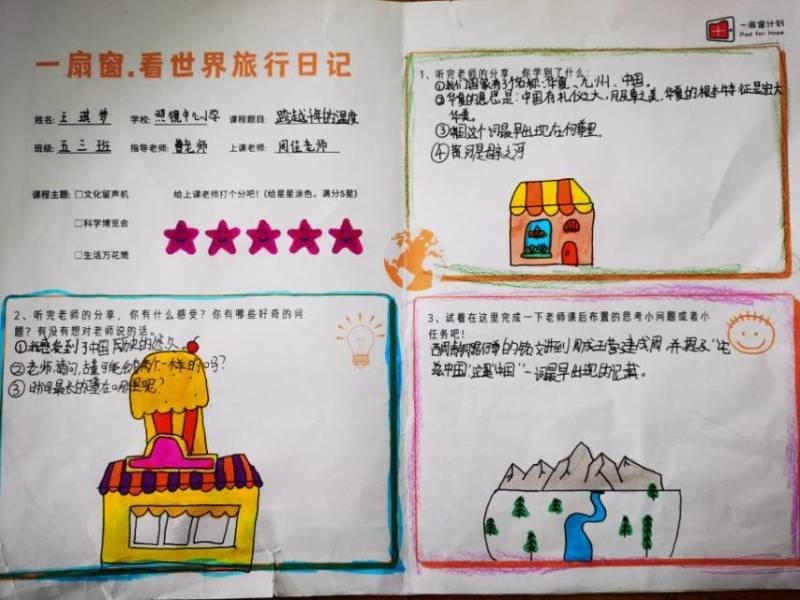 一扇窗计划
Pad for Hope
一扇窗.看世界旅行日记
姓名: 王琪梦 学校: 照镜中心小学 课程题目: 跨越千年的温度
班级: 五三班 指导老师: 曹老师 上课老师: 周佳老师
课程主题: □文化留声机 给上课老师打个分吧！(给星星涂色，满分5星)
□科学博览会
□生活万花筒
1、听完老师的分享，你学到了什么:
①我们国家有3个名称:华夏、九州、中国。
②华夏的意思是:中国有礼仪之大,服章之美,华夏的根本特征是宏大
华美。
③中国这个词最早出现在何尊里。
④黄河是母亲河
2、听完老师的分享，你有什么感受？你有哪些好奇的问
题？有没有想对老师说的话。
①我感受到了中国历史的悠久
②老师,请问,古董可能会有两个一样的吗?
③时间最长的古董在哪里呢?
3、试着在这里完成一下老师课后布置的思考小问题或者小
任务吧！
何尊的铭文讲到成王营建成周,并提及"宅
兹中国"这是"中国"一词最早出现的记载。